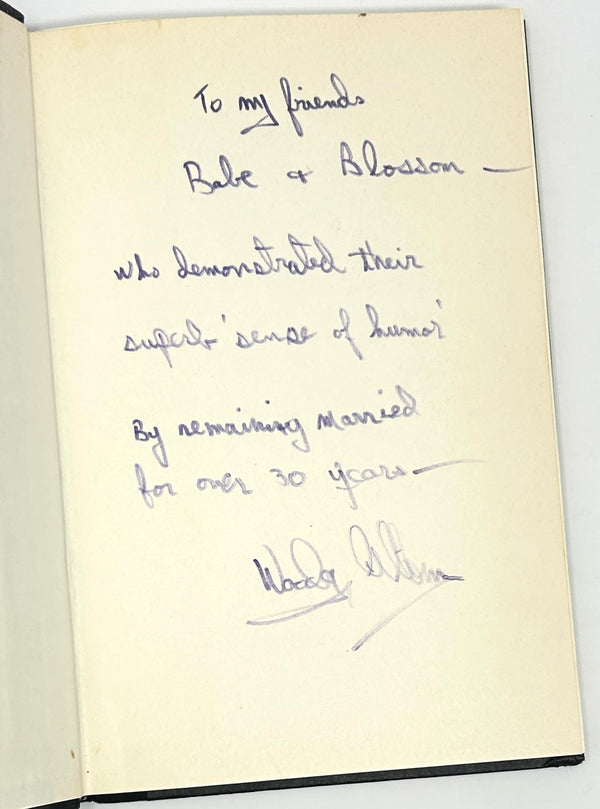 To my friends
Babe & Blossom —
who demonstrated their
superb 'sense of humor'
By remaining married
for over 30 years —
Woody Allen